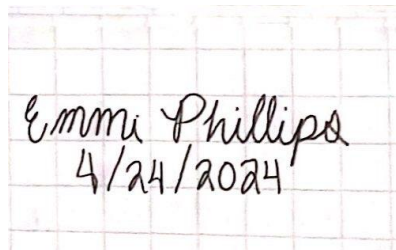 Emmi Phillips
4/24/2024